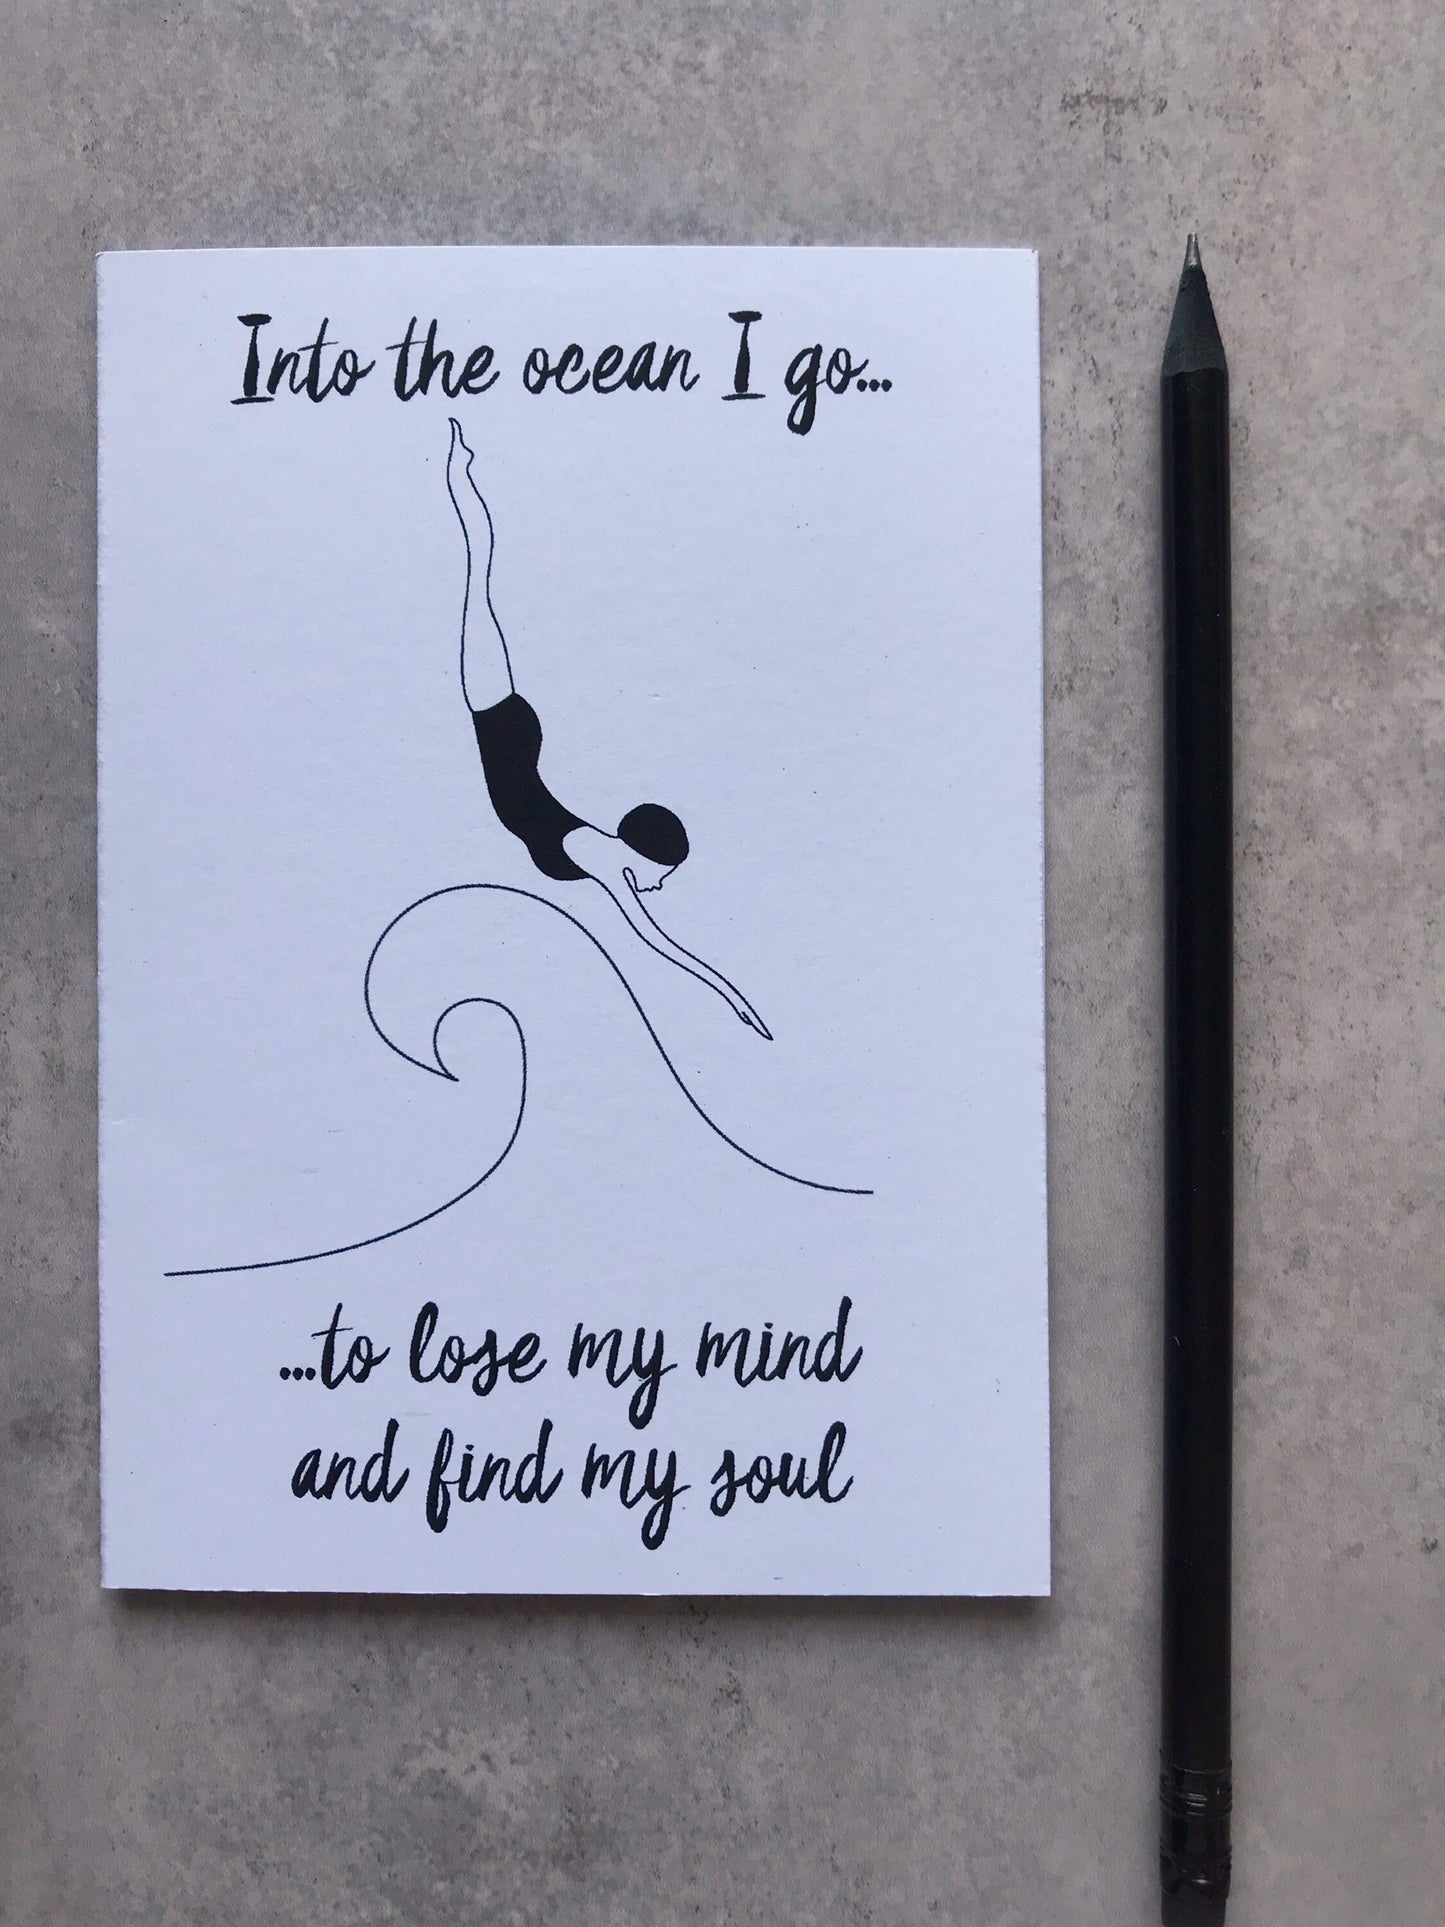 Into the ocean I go...
...to lose my mind
and find my soul